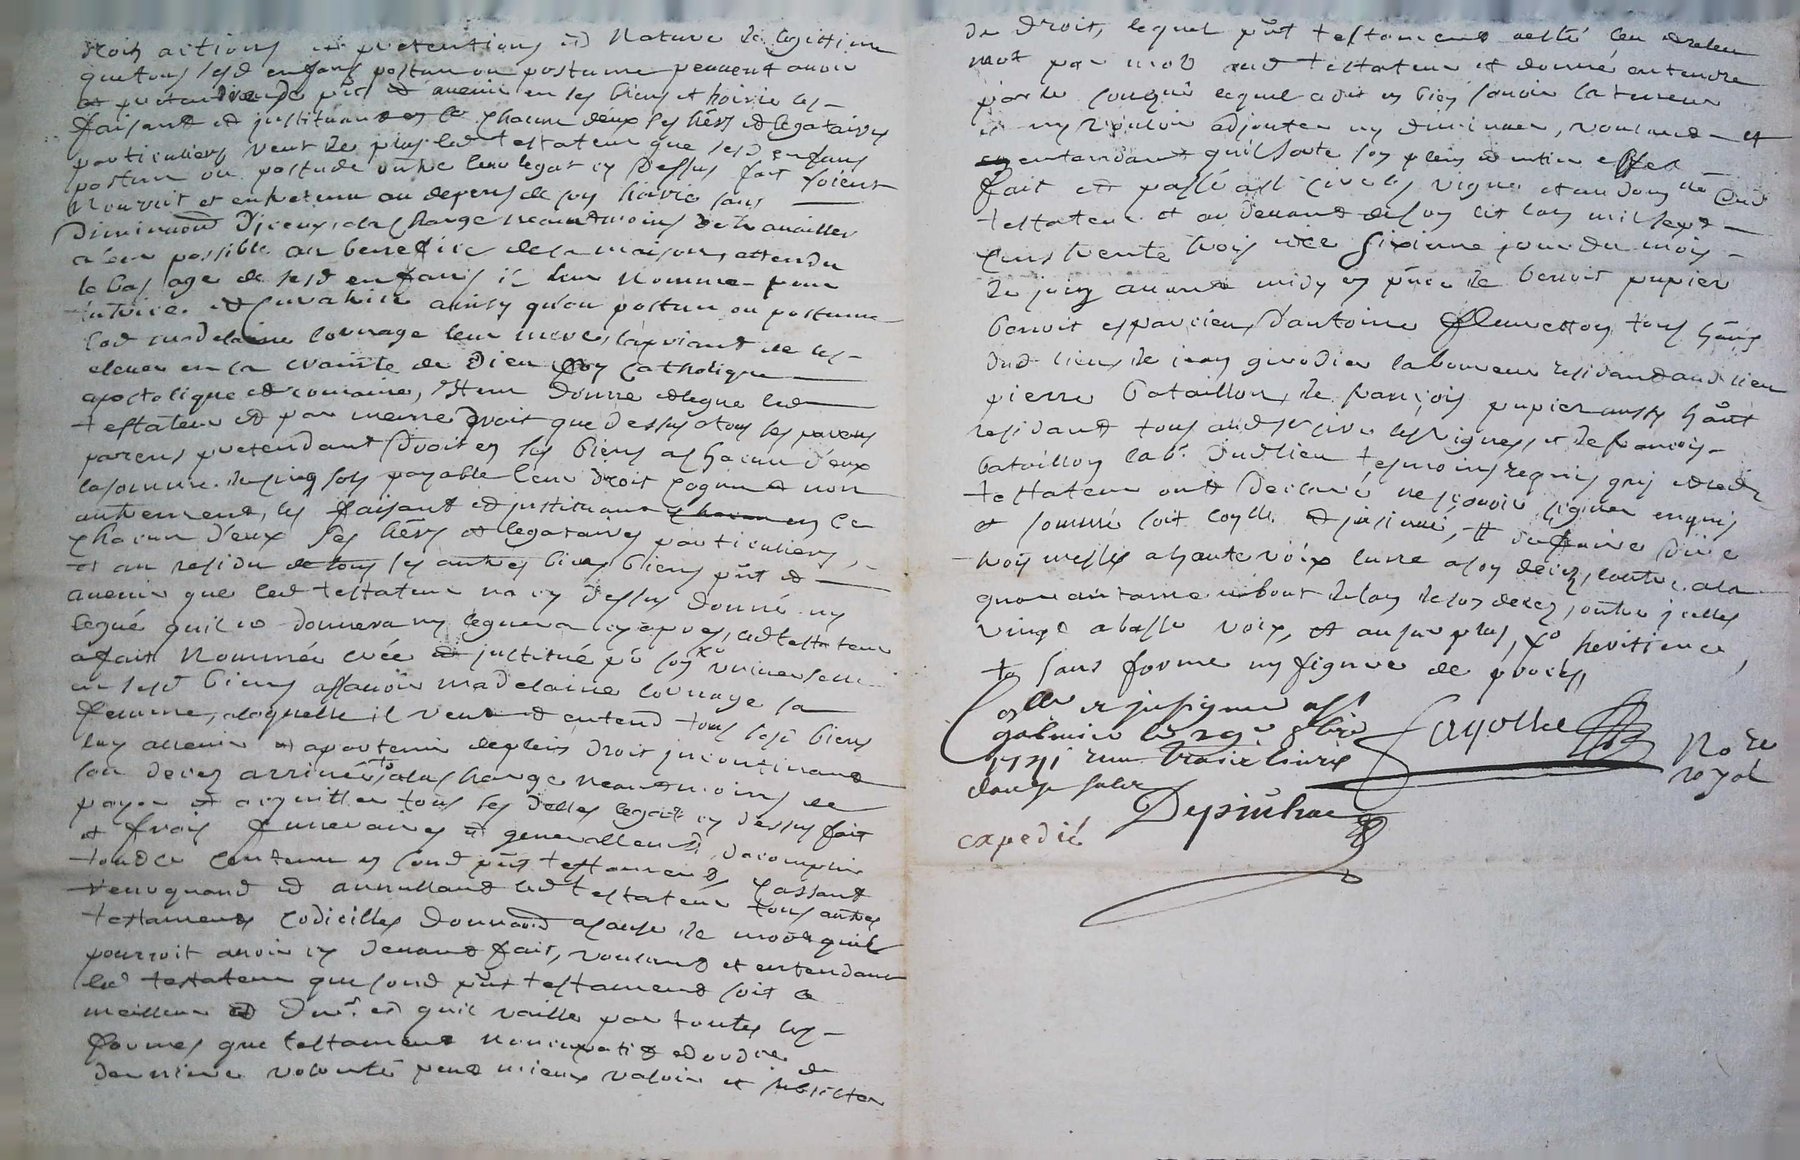 droits actions et pretentions et Nature de legittime
que tous sesd enfans postum ou postume peuvent avoir
et pretendre pnt et avenir en ses biens et hoirie les
faisant et justituant en ce chacun deux ses hers et legataires
particuliers veut de plus led testateur que sesd enfans
postum ou postude outre leur legat cy dessus fait soient
Nourrit et entretenu au depens de son hoirie sans
diminuon d'jceux, ala charge neantmoins de travailler
a leur possible au benefice de la maison, attendu
le bas age de sesd enfans il leur Nomme pour
tutrice et curatrice ainsy qu'au postum ou postume
lad madelaine lournage leur mere, la priant de les
elever en la crainte de Dieu foy Catholique
apostolique et romaine, Item donne et legue led
testateur et par meme droit que dessus a tous ses pauvres
parens pretendant droit en ses biens a chacun d'eux
la somme de cinq sols payable leur droit cognu et non
autrement, les faisant et justituant en ce
chacun d'eux ses hers et legataires particuliers,
et au residu de tous ses autres biens pnt et
avenir que led testateur na cy dessus donné ny
legué qu'il ne donnera ny leguera cy apres, led testateur
a fait Nommée créé et justitué po son universelle
en sesd biens assavoir madelaine lournage sa
femme, alaquelle il veut et entend tous sesd biens
luy avenir et apartenir de plein droit jncontinant
son decez arrivé ala charge neantmoins de
payer et acquitter tous ses dettes legat cy dessus fait
et frais funeraires et generallement, d'acomplir
tout le contenu en sond pnt testament Cassant
revoquand et annulland led testateur tous autres
testamens Codicilles donnaon a cause de mort qu'il
pourroit avoir cy devant fait, voulant et entendant
led testateur que sond pnt testament soit le
meilleur et qu'il vaille par toutes les
formes que testament Noncupatif et ordre de
derniere volonté peut mieux valoir et subsister
de droit, lequel pnt testament a esté leu
mot par mot aud testateur et donné entendre
lequel a dit en bien savoir la teneur
et ny vouloir adjouter ny diminuer, voulant et
entendant qu'il sorte son plein et entier effet
fait et passé a St Cire les vignes et au dom lle dud
testateur et au devant de son lit lan mil sept
cens trente trois et le sixieme jour du mois
de juin avant midy en pnce de benoit pupier
benoit esparcieux d'antoine fleuretton tous hans
dud lieu de jean girodier laboureur residant aud lieu
pierre bataillon, de françois pupier aussy hant
residant tous aud St cire les vignes, et de francois
bataillon lab. dudlieu tesmoins requis qui et led
testateur ont declaré ne sçavoir signer enquis
et sommé soit coylle et jnsinué, # de faire dire
trois messes a haute voix lune a son decez, lautre ala
quarantaine au bout de lan de son decez, joutre jcelles
vingt a basse voix, et au surplus, xo heritiere,
to sans forme ny figure de procés,
Colle et jnsignué a St
galmier le 29e
1741 treize livres
douze sols
fayolle No re
royal
Depinhac
expedié